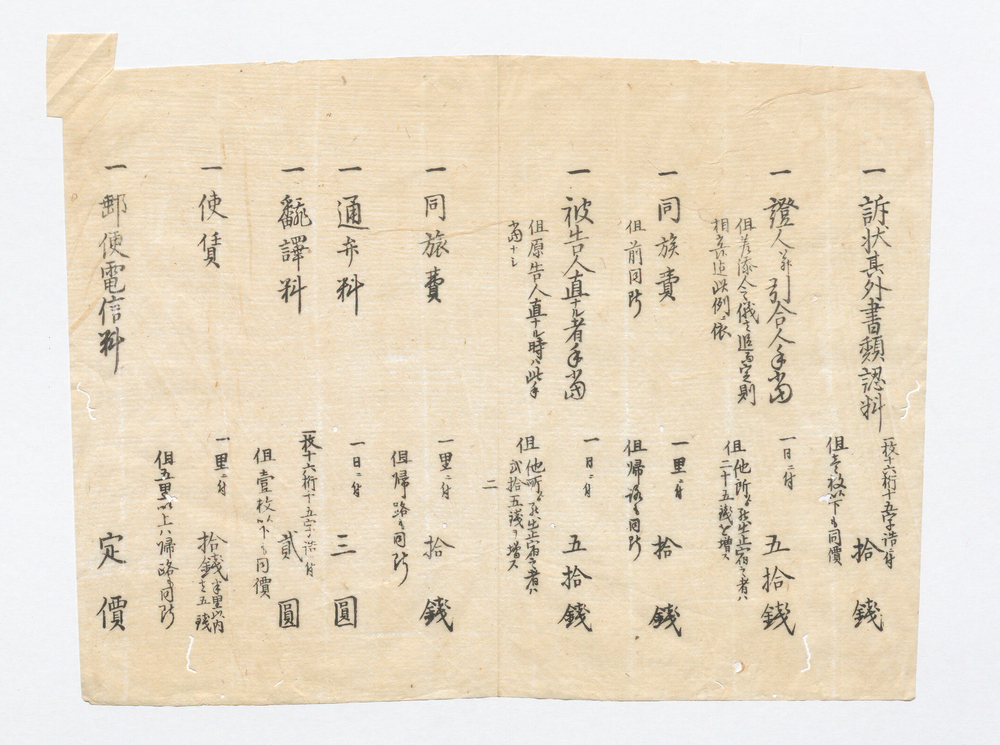 一 訴状其外書類認料
一枚十六桁十五字詰ニ付
拾錢
但壱枚以下モ同價
一 證人并引合人手當
一日ニ付
五拾錢
但差添人之儀者追而定則
相立迄此例ニ依
但他所ゟ罷出止宿之者ハ
二十五錢ヲ増ス
一 同旅費
一里ニ付
拾錢
但前同断
但帰路モ同断
一 被告人直ナル者手當
一日ニ付
五拾錢
但原告人直ナル時ハ此手
當ナシ
但他所ゟ罷出止宿之者ハ
弐拾五錢ヲ増ス
二
一 同旅費
一里ニ付
拾錢
但帰路モ同断
一 通弁料
一日ニ付
三圓
一 飜譯料
一枚十六桁十五字詰ニ付
貳圓
但壹枚以下モ同價
一 使賃
一里ニ付
拾錢
半里以内
者五錢
但五里以上ハ帰路モ同断
一 郵便電信料
定價